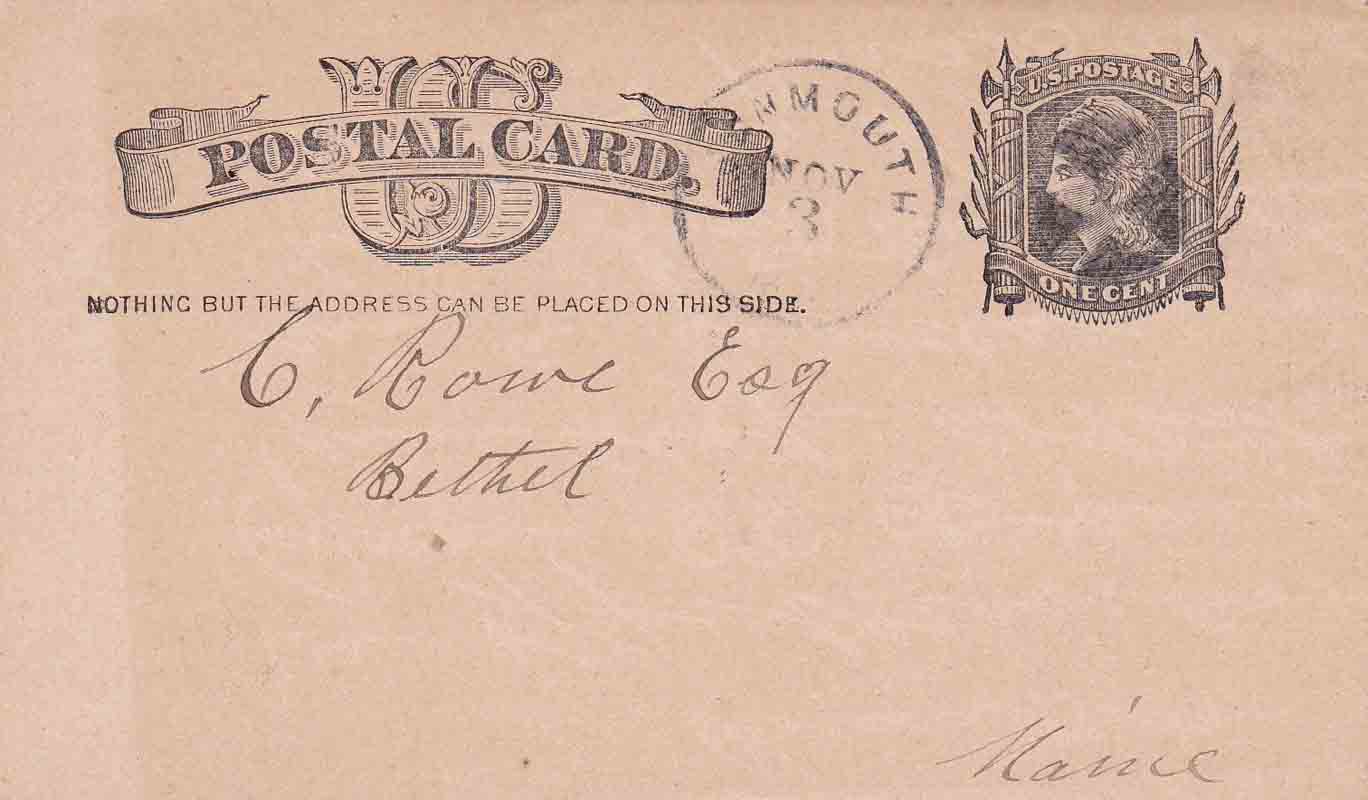 US
POSTAL CARD.
NMOUTH
NOV
3
U.S. POSTAGE
ONE CENT
NOTHING BUT THE ADDRESS CAN BE PLACED ON THIS SIDE.
C, Rowe Esq
Bethel
Maine